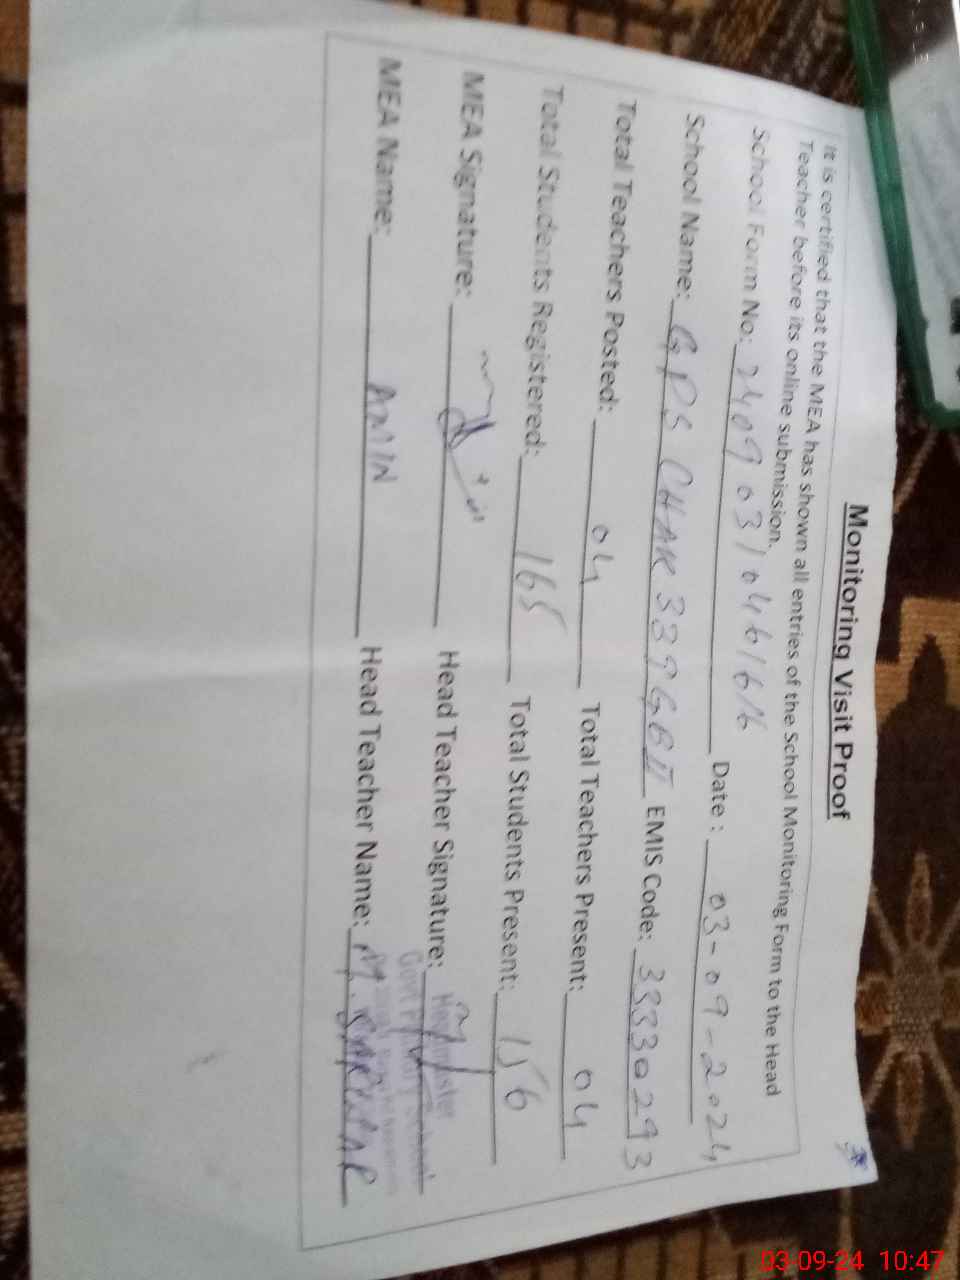 Monitoring Visit Proof
It is certified that the MEA has shown all entries of the School Monitoring Form to the Head
Teacher before its online submission.
School Form No: 24090310461616 Date : 03-09-2024
School Name: GPS CHAK 339 GB II EMIS Code: 33330293
Total Teachers Posted: 04 Total Teachers Present: 04
Total Students Registered: 165 Total Students Present: 156
MEA Signature: Head Teacher Signature:
MEA Name: AMIN Head Teacher Name: M. SARDAR
Headmaster
03-09-24 10:47